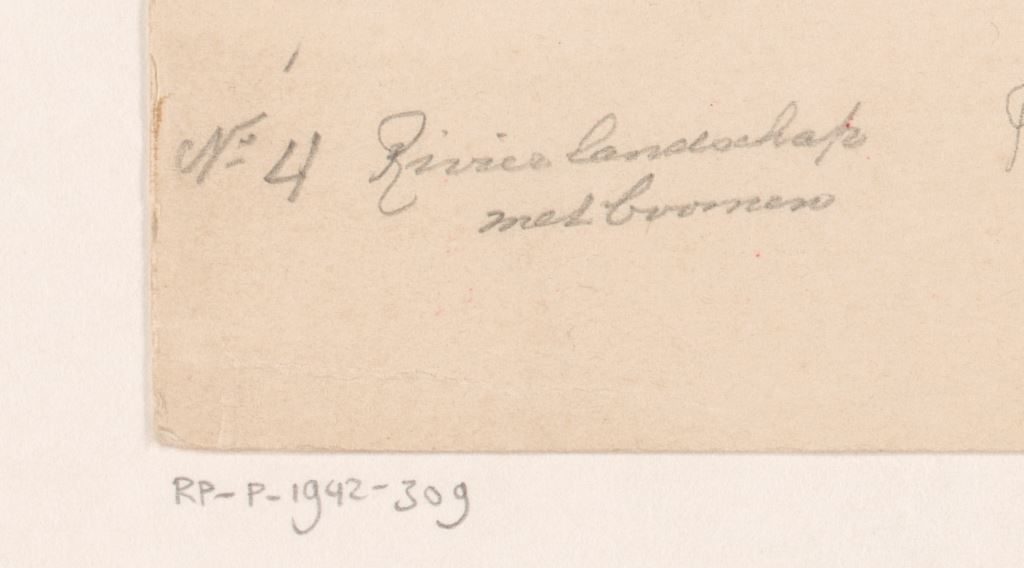 No. 4 Rivierlandschap
met boomen
RP-P-1942-309